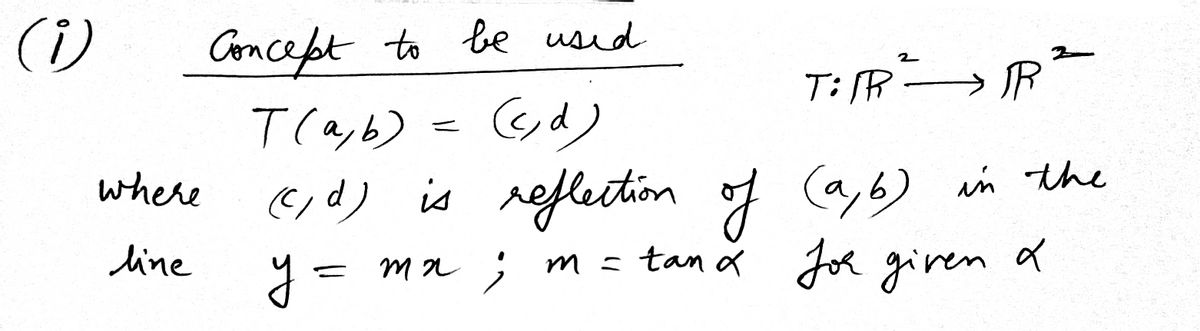 (i) Concept to be used
T: ℝ² ⟶ ℝ²
T(a,b) = (c,d)
where (c,d) is reflection of (a,b) in the
line y = mx ; m = tan α for given α